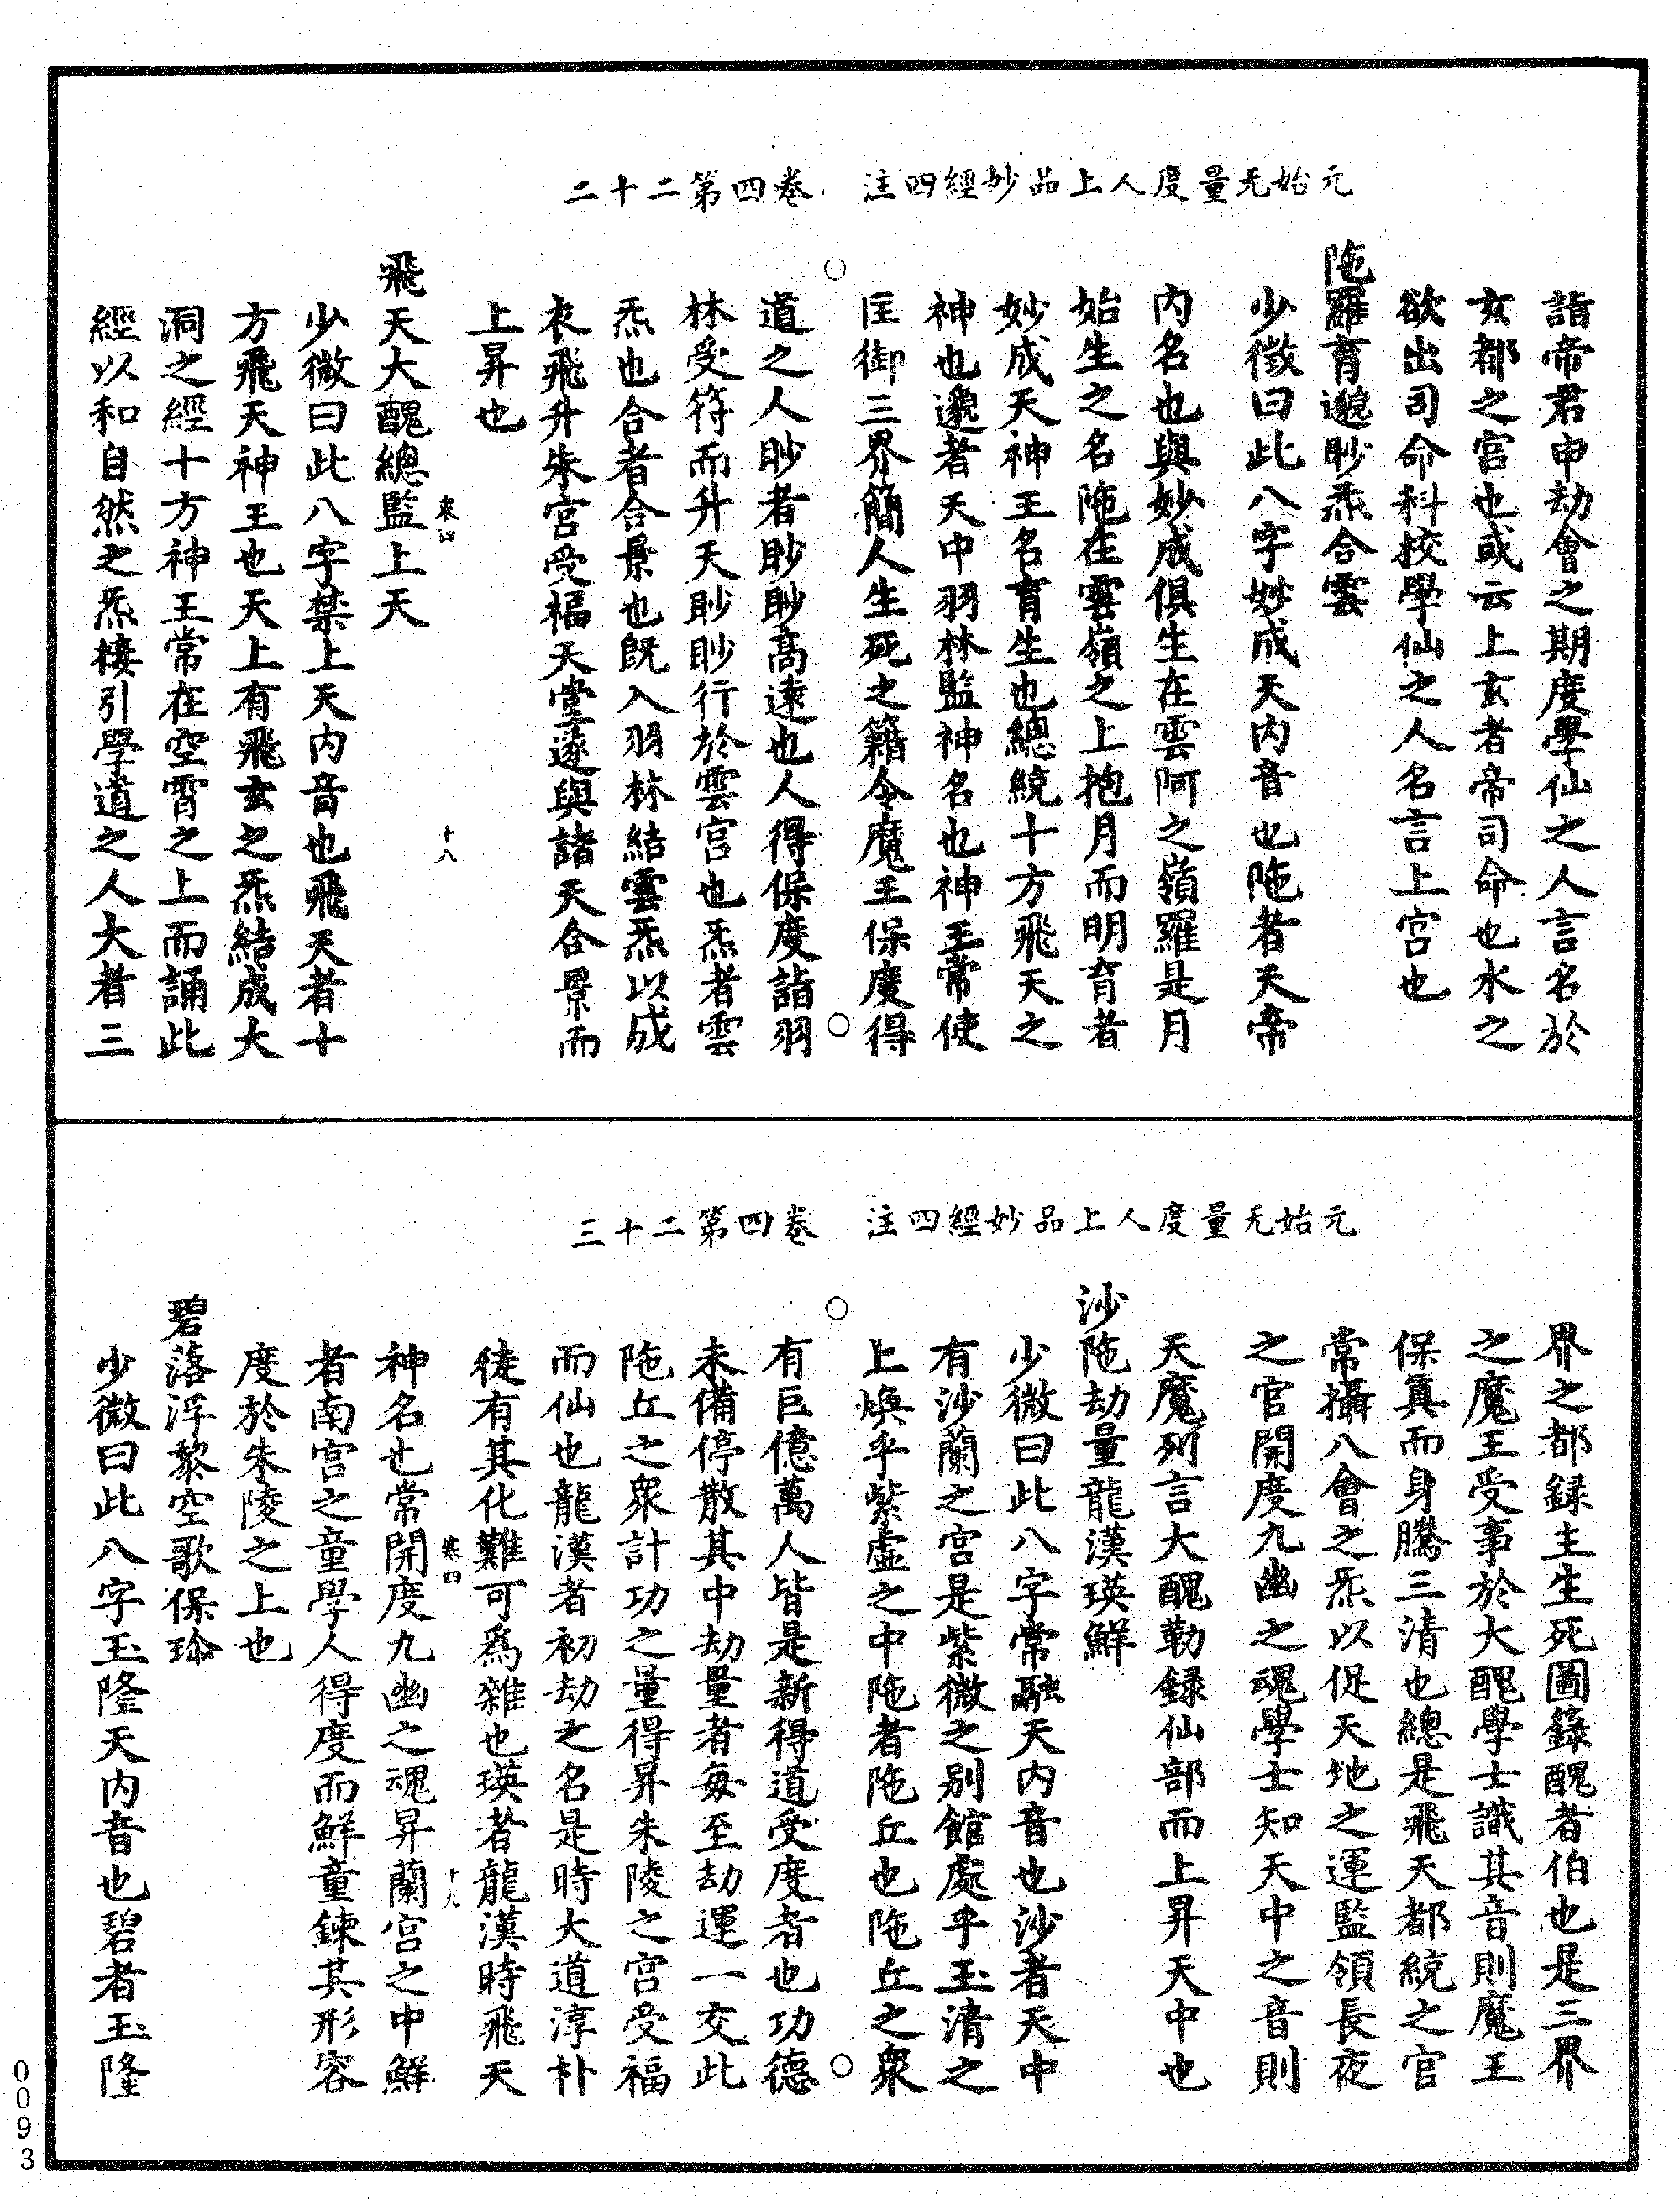 元始无量度人上品妙經四注　卷四第二十二
詣帝君申劫會之期度學仙之人言名於
玄都之宫也或云上玄者帝司命也水之
欲出司命科挍學仙之人名言上宫也
陁羅育邈眇炁合雲
少微曰此八字妙成天内音也陁者天帝
内名也與妙成俱生在雲阿之嶺羅是月
始生之名陁在雲嶺之上抱月而明育者
妙成天神王名育生也總統十方飛天之
神也邈者天中羽林監神名也神王常使
匡御三界簡人生死之籍令魔王保度得
道之人眇者眇眇高遠也人得保度詣羽
林受符而升天眇眇行於雲宫也炁者雲
炁也合者合景也既入羽林結雲炁以成
衣飛升朱宫受福天堂遂與諸天合景而
上昇也
來四　十八
飛天大醜總監上天
少微曰此八字禁上天内音也飛天者十
方飛天神王也天上有飛玄之炁結成大
洞之經十方神王常在空霄之上而誦此
經以和自然之炁棲引學道之人大者三
元始无量度人上品妙經四注　卷四第二十三
界之都録主生死圖籙醜者伯也是三界
之魔王受事於大醜學士識其音則魔王
保真而身騰三清也總是飛天都統之官
常攝八會之炁以促天地之運監領長夜
之官開度九幽之魂學士知天中之音則
天魔列言大醜勒録仙部而上昇天中也
沙陁劫量龍漢瑛鮮
少微曰此八字常融天内音也沙者天中
有沙蘭之宫是紫微之别館處乎玉清之
上焕乎紫虚之中陁者陁丘也陁丘之衆
有巨億萬人皆是新得道受度者也功德
未備停散其中劫量者每至劫運一交此
陁丘之衆計功之量得昇朱陵之宫受福
而仙也龍漢者初劫之名是時大道淳朴
徒有其化難可爲雜也瑛若龍漢時飛天
來四　十九
神名也常開度九幽之魂昇蘭宫之中鮮
者南宫之童學人得度而鮮童鍊其形容
度於朱陵之上也
碧落浮黎空歌保珍
少微曰此八字玉隆天内音也碧者玉隆
0093